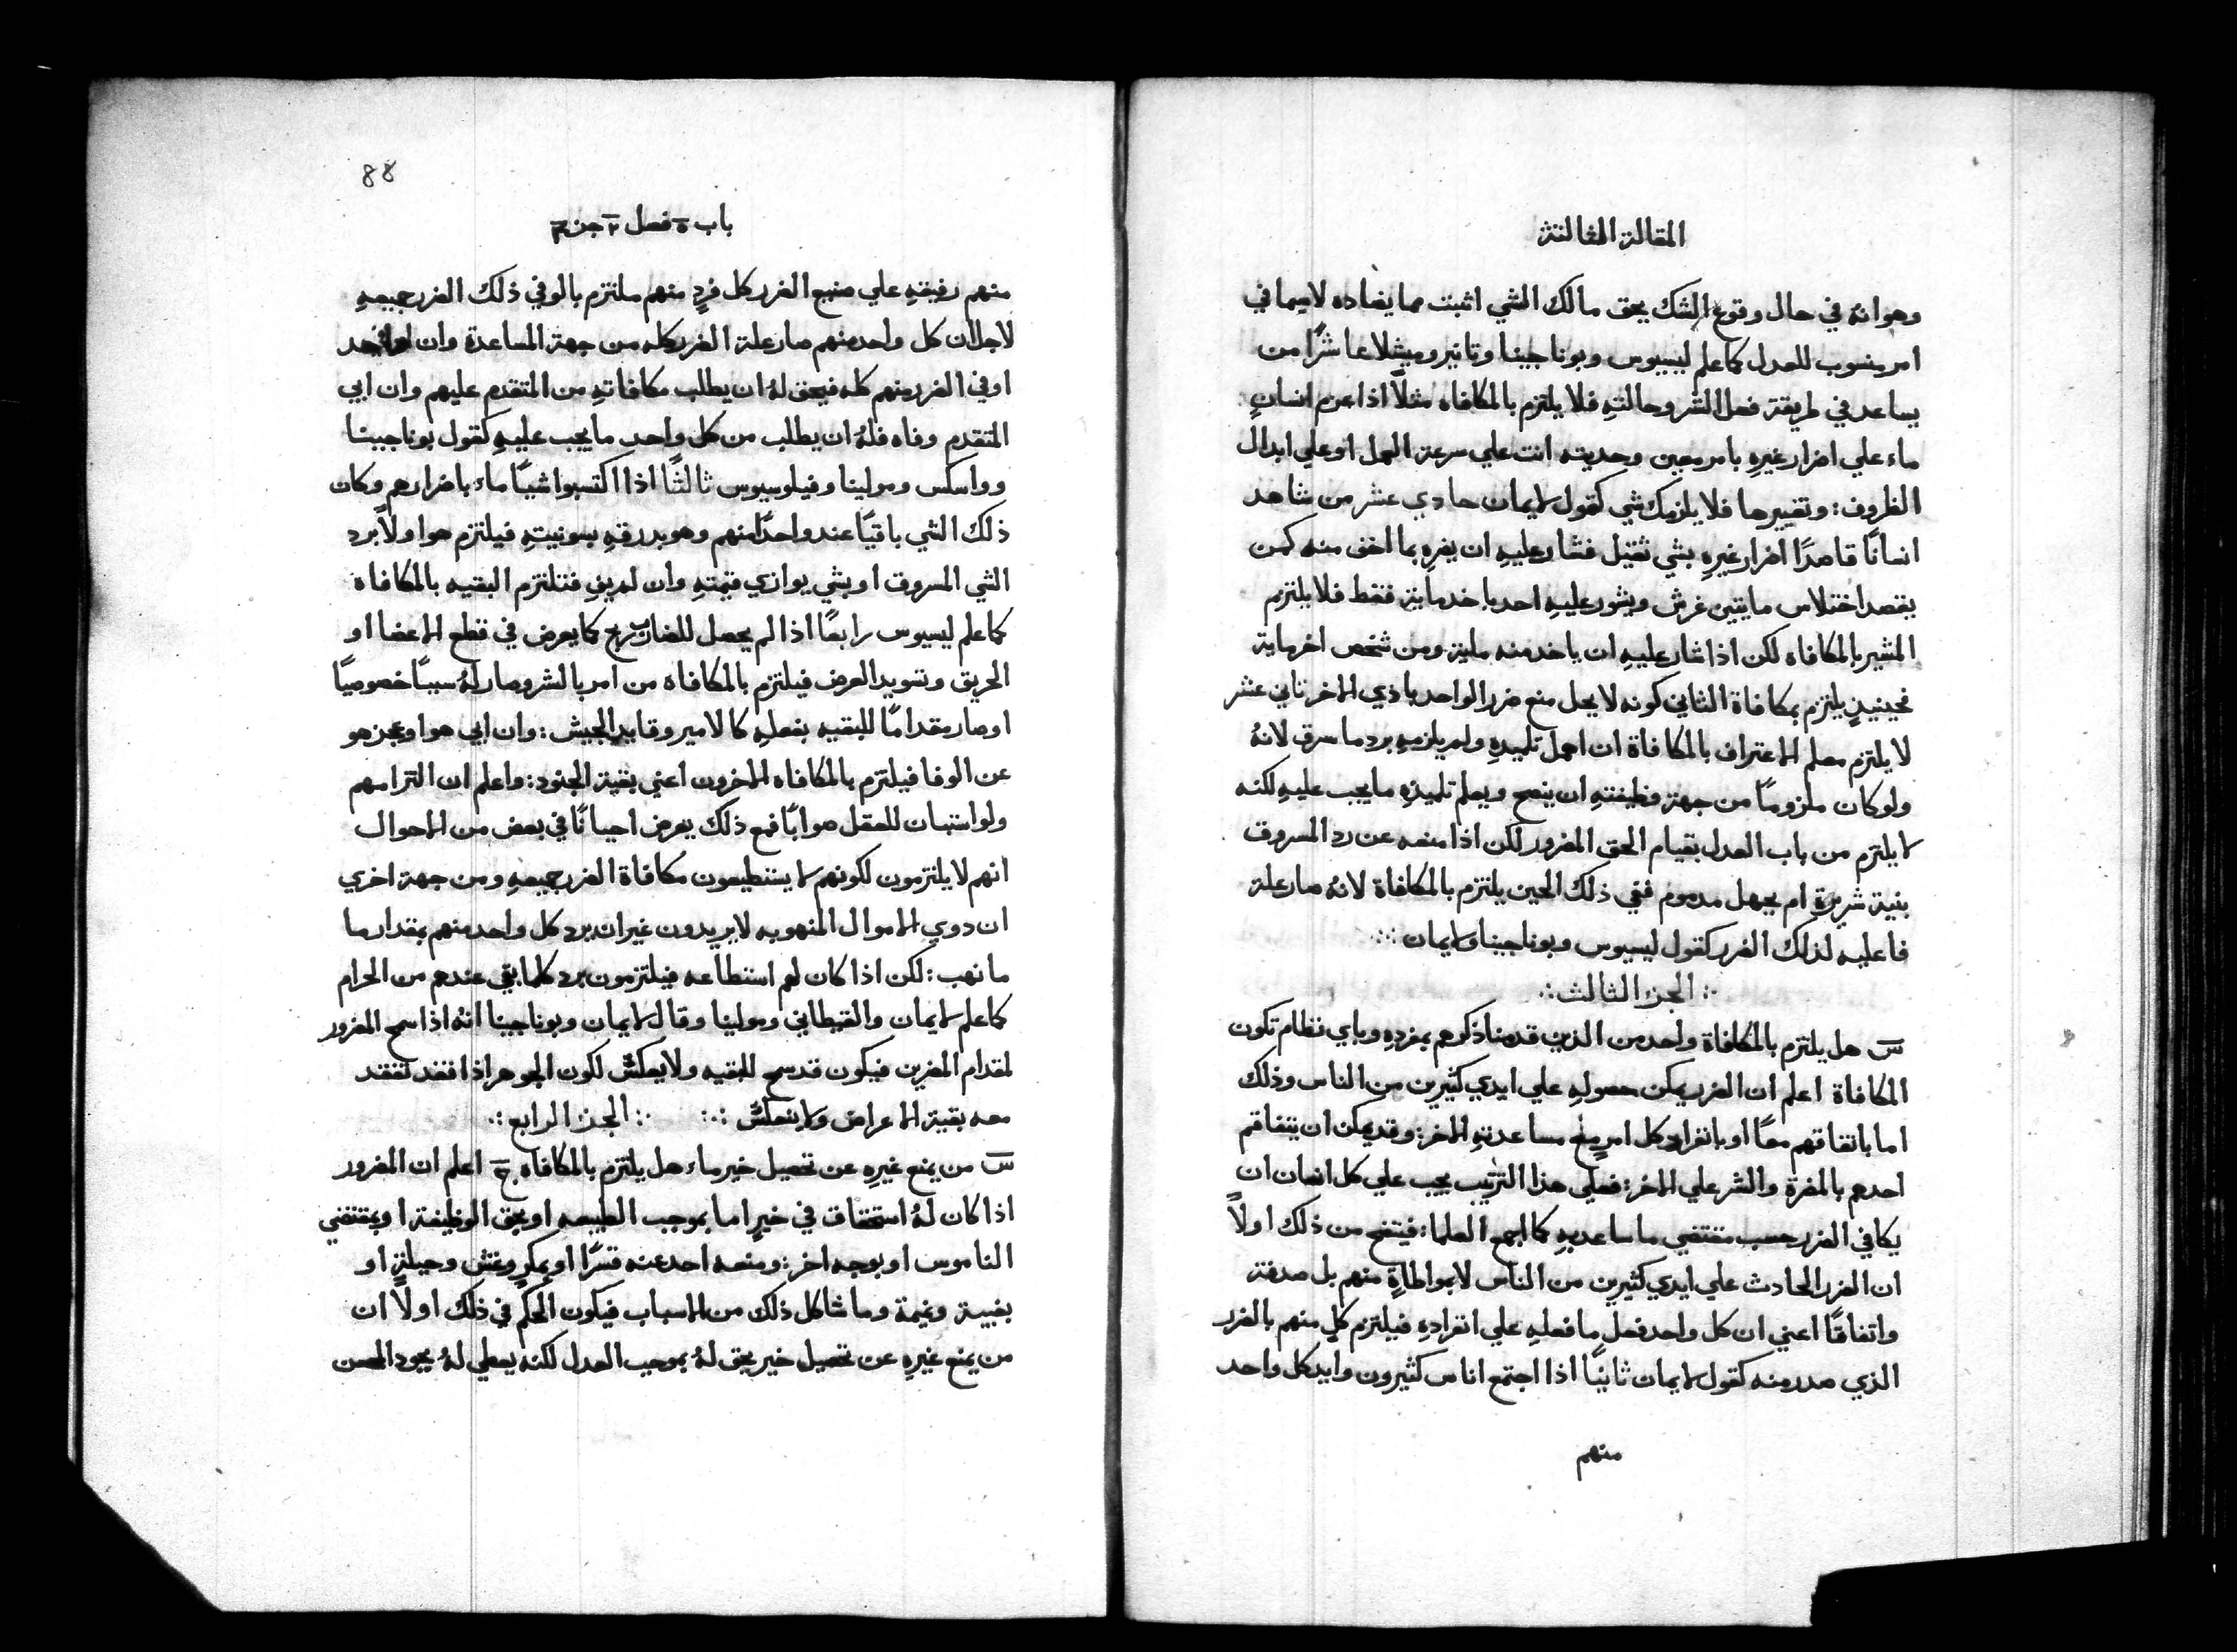 المقالة الثالثة
وهو انهُ في حال وقوع الشك يحق مالك الشي اثبت مما يضاده لاسيما في
امر ينسوب للعدل كما علم ليسيوس وبوناجينا وتانير وميثلا عاشرًا من
يساعد في طريقة فعل الشر وحالتهِ فلا يلتزم بالمكافاه مثلاً اذا عزم انسانٍ
ماء علي اضرار غيرهِ بامر معين وحديته انت علي سرعة العمل او علي ابدال
الظروف: وتغييرها فلا يلزمك شي كقول لايمان حادي عشر من شاهد
انسانًا قاصدًا اضرار غيرهِ بشي ثقيل فشار عليهِ ان يضرهِ بما اخف منه كمن
يقصد اختلاس مايتين غرش ويشور عليهِ احد باخد ماية فقط فلا يلتزم
المشير بالمكافاه لكن اذا شار عليهِ ان ياخد منه ماية ومن شخص اخر ماية
فحينيذٍ يلتزم بمكافاة الثاني كونه لا يحل منع ضرر الواحد باذي الاخر ثاني عشر
لا يلتزم معلم الاعتراف بالمكافاة ان اهمل تلميدهِ ولم يلزمهِ برد ما سرق لانهُ
ولو كان ملزومًا من جهة وظيفتهِ ان ينصح ويعلم تلميذهِ ما يجب عليهِ لكنه
لا يلتزم من باب العدل بقيام الحق المضرور لكن اذا منعه عن رد المسروق
بنية شريرةٍ ام بجهل مدموم ففي ذلك الحين يلتزم بالمكافاة لانهُ صار علة
فاعليه لذلك الضرر كقول ليسيوس وبوناجينا ولايمان ∴
∴ الجز الثالث ∴
س هل يلتزم بالمكافاة واحد من الذين قدمنا ذكرهم بمفردهِ وباي نظام تكون
المكافاة اعلم ان الضرر يمكن حصولهِ علي ايدي كثيرين من الناس وذلك
اما باتفاقهم معًا او بانفراد كل امرٍ منع مساعدتهِ الاخر: وقد يمكن ان يتفاقم
احدهم بالمضرة والشر علي الاخر: فعلي هذا الترتيب يجب علي كل انسان ان
يكافي الضرر حسب مقتضي ما ساعد بهِ كما اجمع العلما: فيتضح من ذلك اولاً
ان الضرر الحادث علي ايدي كثيرين من الناس لا بمواطاةٍ منهم بل صدفة
واتفاقًا اعني ان كل واحد فعل ما فعلهِ علي انفرادهِ فيلتزم كلٍ منهم بالضرر
الذي صدر منه كقول لايمان ثانيًا اذا اجتمع اناس كثيرون وايد كل واحد
منهم
88
باب ٥ فصل ٢ جز ٣
منهم رفيقهِ علي صنيع الضرر كل فردٍ منهم ملتزم بالوفي ذلك الضرر جميعهِ
لاجل ان كل واحد منهم صار علة الضرر كله من جهة المساعدة وان احد
اوفي الضرر منهم كله فيحق لهُ ان يطلب مكافاتهِ من المتقدم عليهم وان ابي
المتقدم وفاه فلهُ ان يطلب من كل واحدٍ ما يجب عليهِ كقول بوناجينا
وواسكس ومولينا وفيلوسيوس ثالثًا اذا اكتسبوا شيًا ماء باضرارهم وكان
ذلك الشي باقيًا عند واحدًا منهم وهو بدرقهِ بسونيتهِ فيلتزم هو اولاً برد
الشي المسروق او بشي يوازي قيمتهِ وان لم يفِ فتلتزم البقيه بالمكافاة
كما علم ليسيوس رابعًا اذا لم يحصل للضارب ربح كما يعرض في قطع الاعضا او
الحريق وتسويد العرض فيلتزم بالمكافاه من امر بالشر وصار لهُ سببًا خصوصيًا
او صار مقدامًا للبقيه بفعلهِ كالامير وقايد الجيش: وان ابي هو او عجز هو
عن الوفا فيلتزم بالمكافاه الاخرون اعني بقية الجنود: واعلم ان التزامهم
ولو استبان للعقل صوابًا فمع ذلك يعرض احيانًا في بعض من الاحوال
انهم لا يلتزمون لكونهم لا يستطيعون مكافاة الضرر جميعهِ ومن جهة اخري
ان دوي الاموال المنهوبه لا يريدون غير ان يرد كل واحد منهم بمقدار ما
ما نهب: لكن اذا كان لهم استطاعه فيلتزمون برد كلما بقي عندهم من الحرام
كما علم لايمان والقيطاني ومولينا وقال لايمان وبوناجينا انهُ اذا سمح المضرور
لمقدام المضرين فيكون قد سمح للبقيه ولا يعكس لكون الجوهر اذا فقد تفقد
معه بقية الاعراض ولا ينعكس ∴ ∴ الجز الرابع ∴
س من يمنع غيرهِ عن تحصيل خير ماء هل يلتزم بالمكافاه ج اعلم ان المضرور
اذا كان لهُ استحقاق في خيرٍ اما بموجب الطبيعه او بحق الوظيفة او بمقتضي
الناموس او بوجه اخر: ومنعه احد عنه قسرًا او بمكرٍ وغش وحيلةٍ او
بغيبة ونميمة وما شاكل ذلك من الاسباب فيكون الحكم في ذلك اولاً ان
من يمنع غيرهِ عن تحصيل خير يحق لهُ بموجب العدل لكنه يعطي لهُ بجود المحسن